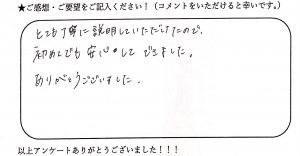 ★ご感想・ご要望をご記入ください！（コメントをいただけると幸いです。）
とても丁寧に説明していただけたので、
初めてでも安心してできました。
ありがとうございました。
以上アンケートありがとうございました！！！